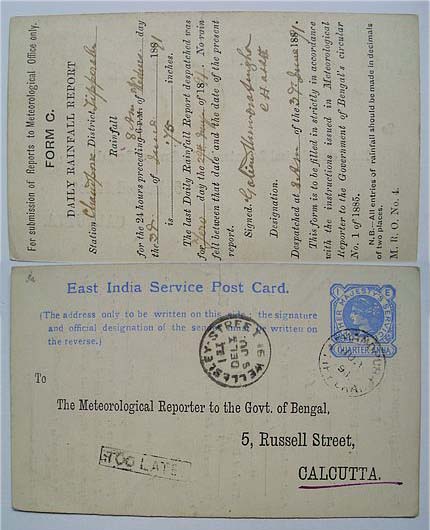 For submission of Reports to Meteorological Office only.
FORM C.
DAILY RAINFALL REPORT
Station Chandpore District Tipperah
Rainfall
for the 24 hours preceding 8 A.M. of day
the 3d of June 1891
is inches.
The last Daily Rainfall Report despatched was
for day the 2d June of 1891. No rain
fell between that date and the date of the present
report.
Signed.
Designation.
Despatched at 8 A.M. of the 3d June 1891.
This form is to be filled in strictly in accordance
with the instructions issued in Meteorological
Reporter to the Government of Bengal's circular
No. 1 of 1885.
N.B.—All entries of rainfall should be made in decimals
of two places.
M. R. O. No. 4.
East India Service Post Card.
(The address only to be written on this side, the signature
and official designation of the sender must be written on
the reverse.)
HER MAJESTY'S SERVICE
QUARTER ANNA
WELLESLEY-STREET
DEL
JU
91
To
The Meteorological Reporter to the Govt. of Bengal,
5, Russell Street,
CALCUTTA.
TOO LATE